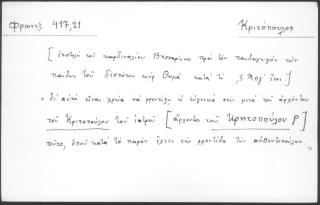 Φραντζ. 417,21 Κριτόπουλος
[ἐπιστολὴ τοῦ καρδιναλίου Βησσαρίωνος πρὸς τὸν παιδαγωγὸν τῶν
παίδων τοῦ δεσπότου κὺρ Θωμᾶ κατὰ τὸ ͵ϛ ἔτος]
« δι' αὐτὸ εἶναι χρεία νὰ φροντίζῃ ἡ εὐγένειά σου μετὰ τοῦ ἄρχοντος
τοῦ Κριτοπούλου τοῦ ἰατροῦ [ἄρχοντος τοῦ Κρητοπούλου P]
τοῦτο, ὁποῦ κατὰ τὸ παρὸν ἔχετε τὴν φροντίδα τῶν αὐθεντοπούλων. »